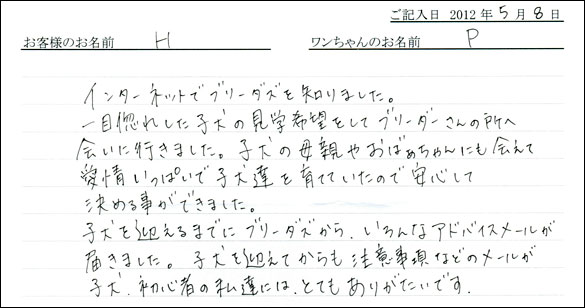 ご記入日 2012年5月8日
お客様のお名前 H ワンちゃんのお名前 P
インターネットでブリーダズを知りました。
一目惚れした子犬の見学希望をしてブリーダーさんの所へ
会いに行きました。子犬の母親やおばぁちゃんにも会えて
愛情いっぱいで子犬達を育てていたので安心して
決める事ができました。
子犬を迎えるまでにブリーダズから、いろんなアドバイスメールが
届きました。子犬を迎えてからも注意事項などのメールが
子犬、初心者の私達には、とてもありがたいです。